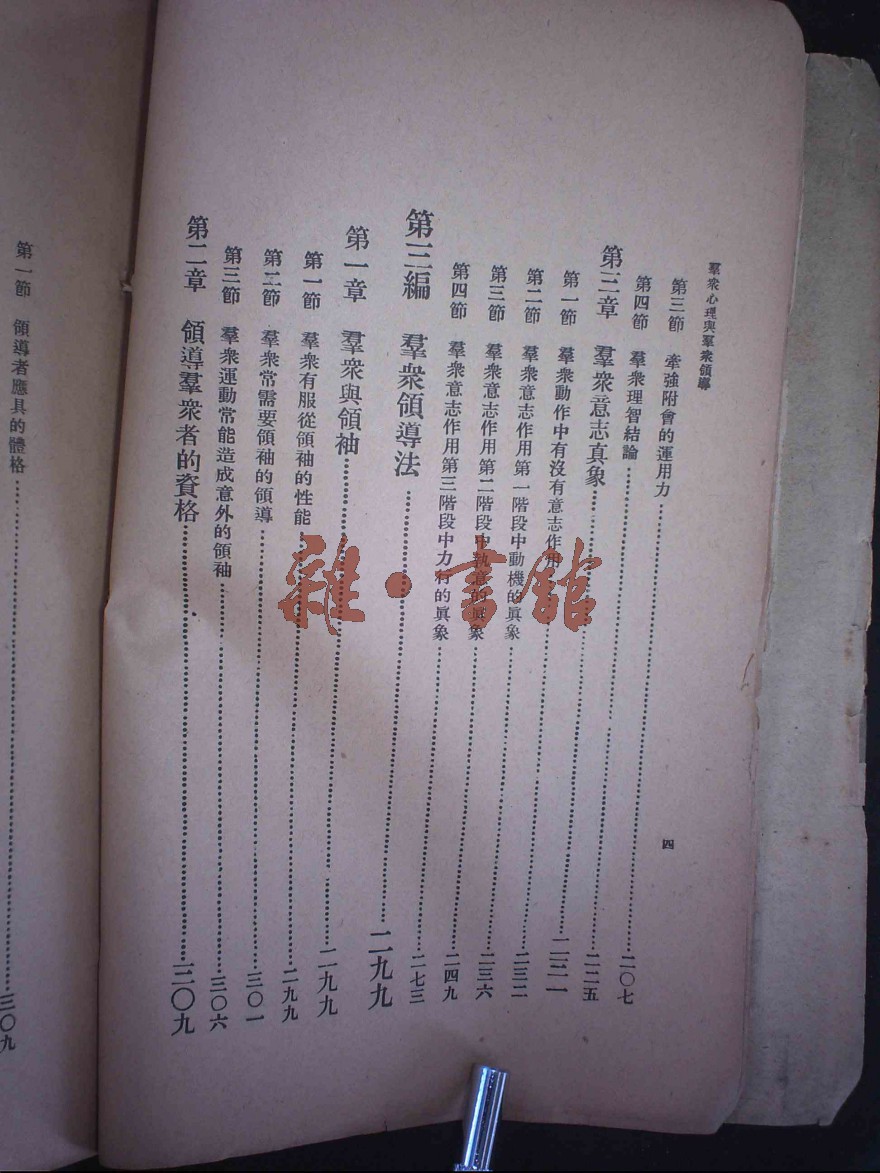 羣衆心理與羣衆領導
四
第三節 牽強附會的運用力……二〇七
第四節 羣衆理智結論……二二五
第三章 羣衆意志真象……二三一
第一節 羣衆動作中有沒有意志作用……二三二
第二節 羣衆意志作用第一階段中動機的眞象……二三六
第三節 羣衆意志作用第二階段中執意的眞象……二四九
第四節 羣衆意志作用第三階段中力行的眞象……二七三
第三編 羣衆領導法……二九九
第一章 羣衆與領袖……二九九
第一節 羣衆有服從領袖的性能……二九九
第二節 羣衆常需要領袖的領導……三〇一
第三節 羣衆運動常能造成意外的領袖……三〇六
第二章 領導羣衆者的資格……三〇九
第一節 領導者應具的體格……三〇九
雜·書館